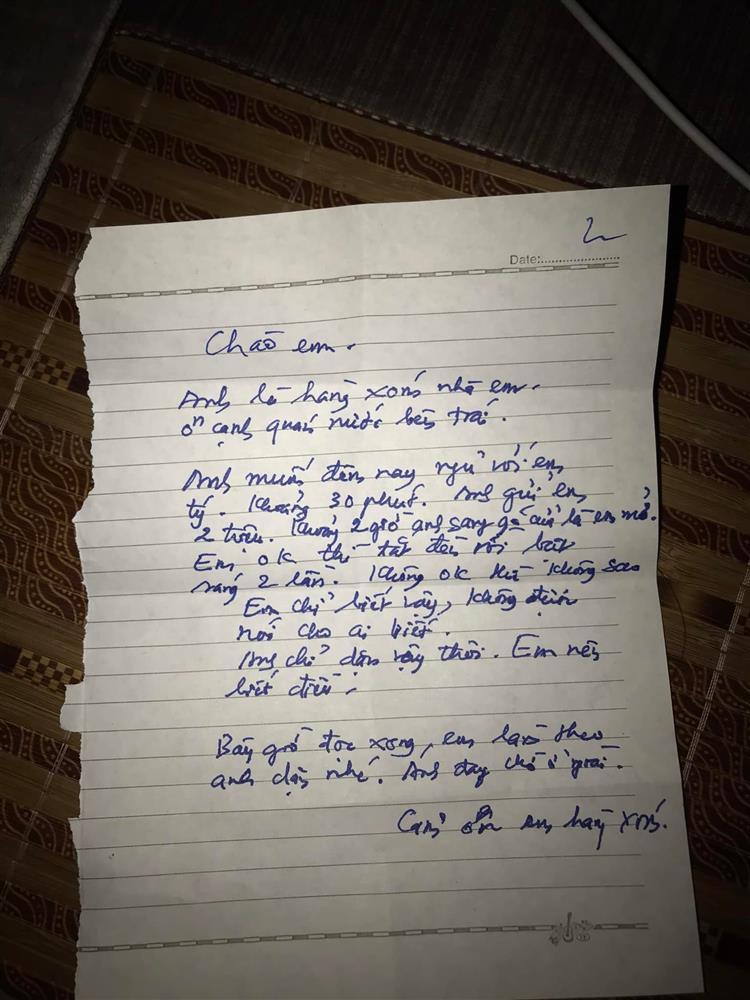 2
Date:........................
Chào em.
Anh là hàng xóm nhà em.
ở cạnh quán nước bên trái.
Anh muốn đêm nay ngủ với em
tý. Khoảng 30 phút. Anh gửi em
2 triệu. Khoảng 2 giờ anh sang gõ cửa là em mở.
Em ok thì tắt đèn rồi bật
sáng 2 lần. Không ok thì không sao
Em chỉ biết vậy, không được
nói cho ai biết.
Anh chỉ dặn vậy thôi. Em nên
biết điều.
Bây giờ đọc xong, em làm theo
anh dặn nhé. Anh đang chờ ở
Cảm ơn em hàng xóm.